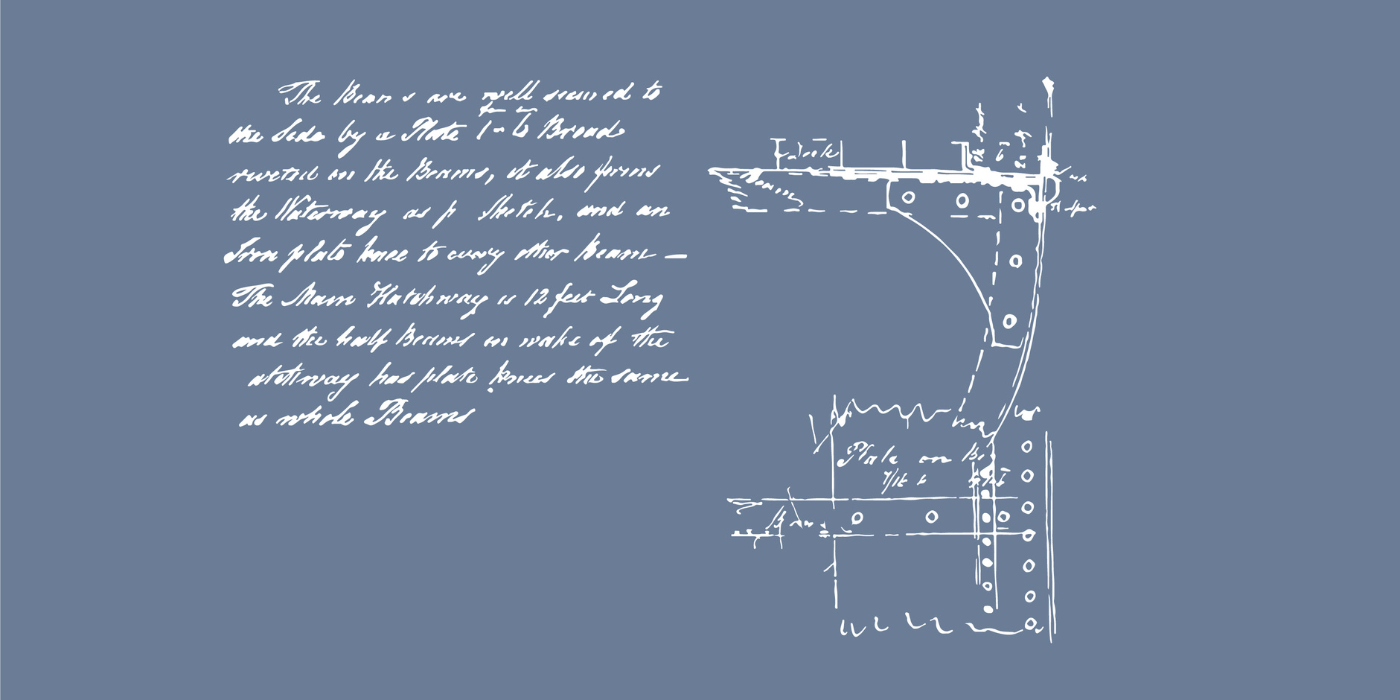 The Beams are well secured to
the Side by a Plate 1-6 Broad
riveted on the Beams, it also forms
the Waterway as p Sketch, and an
Iron plate knee to every other Beam —
The Main Hatchway is 12 feet Long
and the half Beams in wake of the
atchway has plate knees the same
as whole Beams
Beam
Plate on
7/16